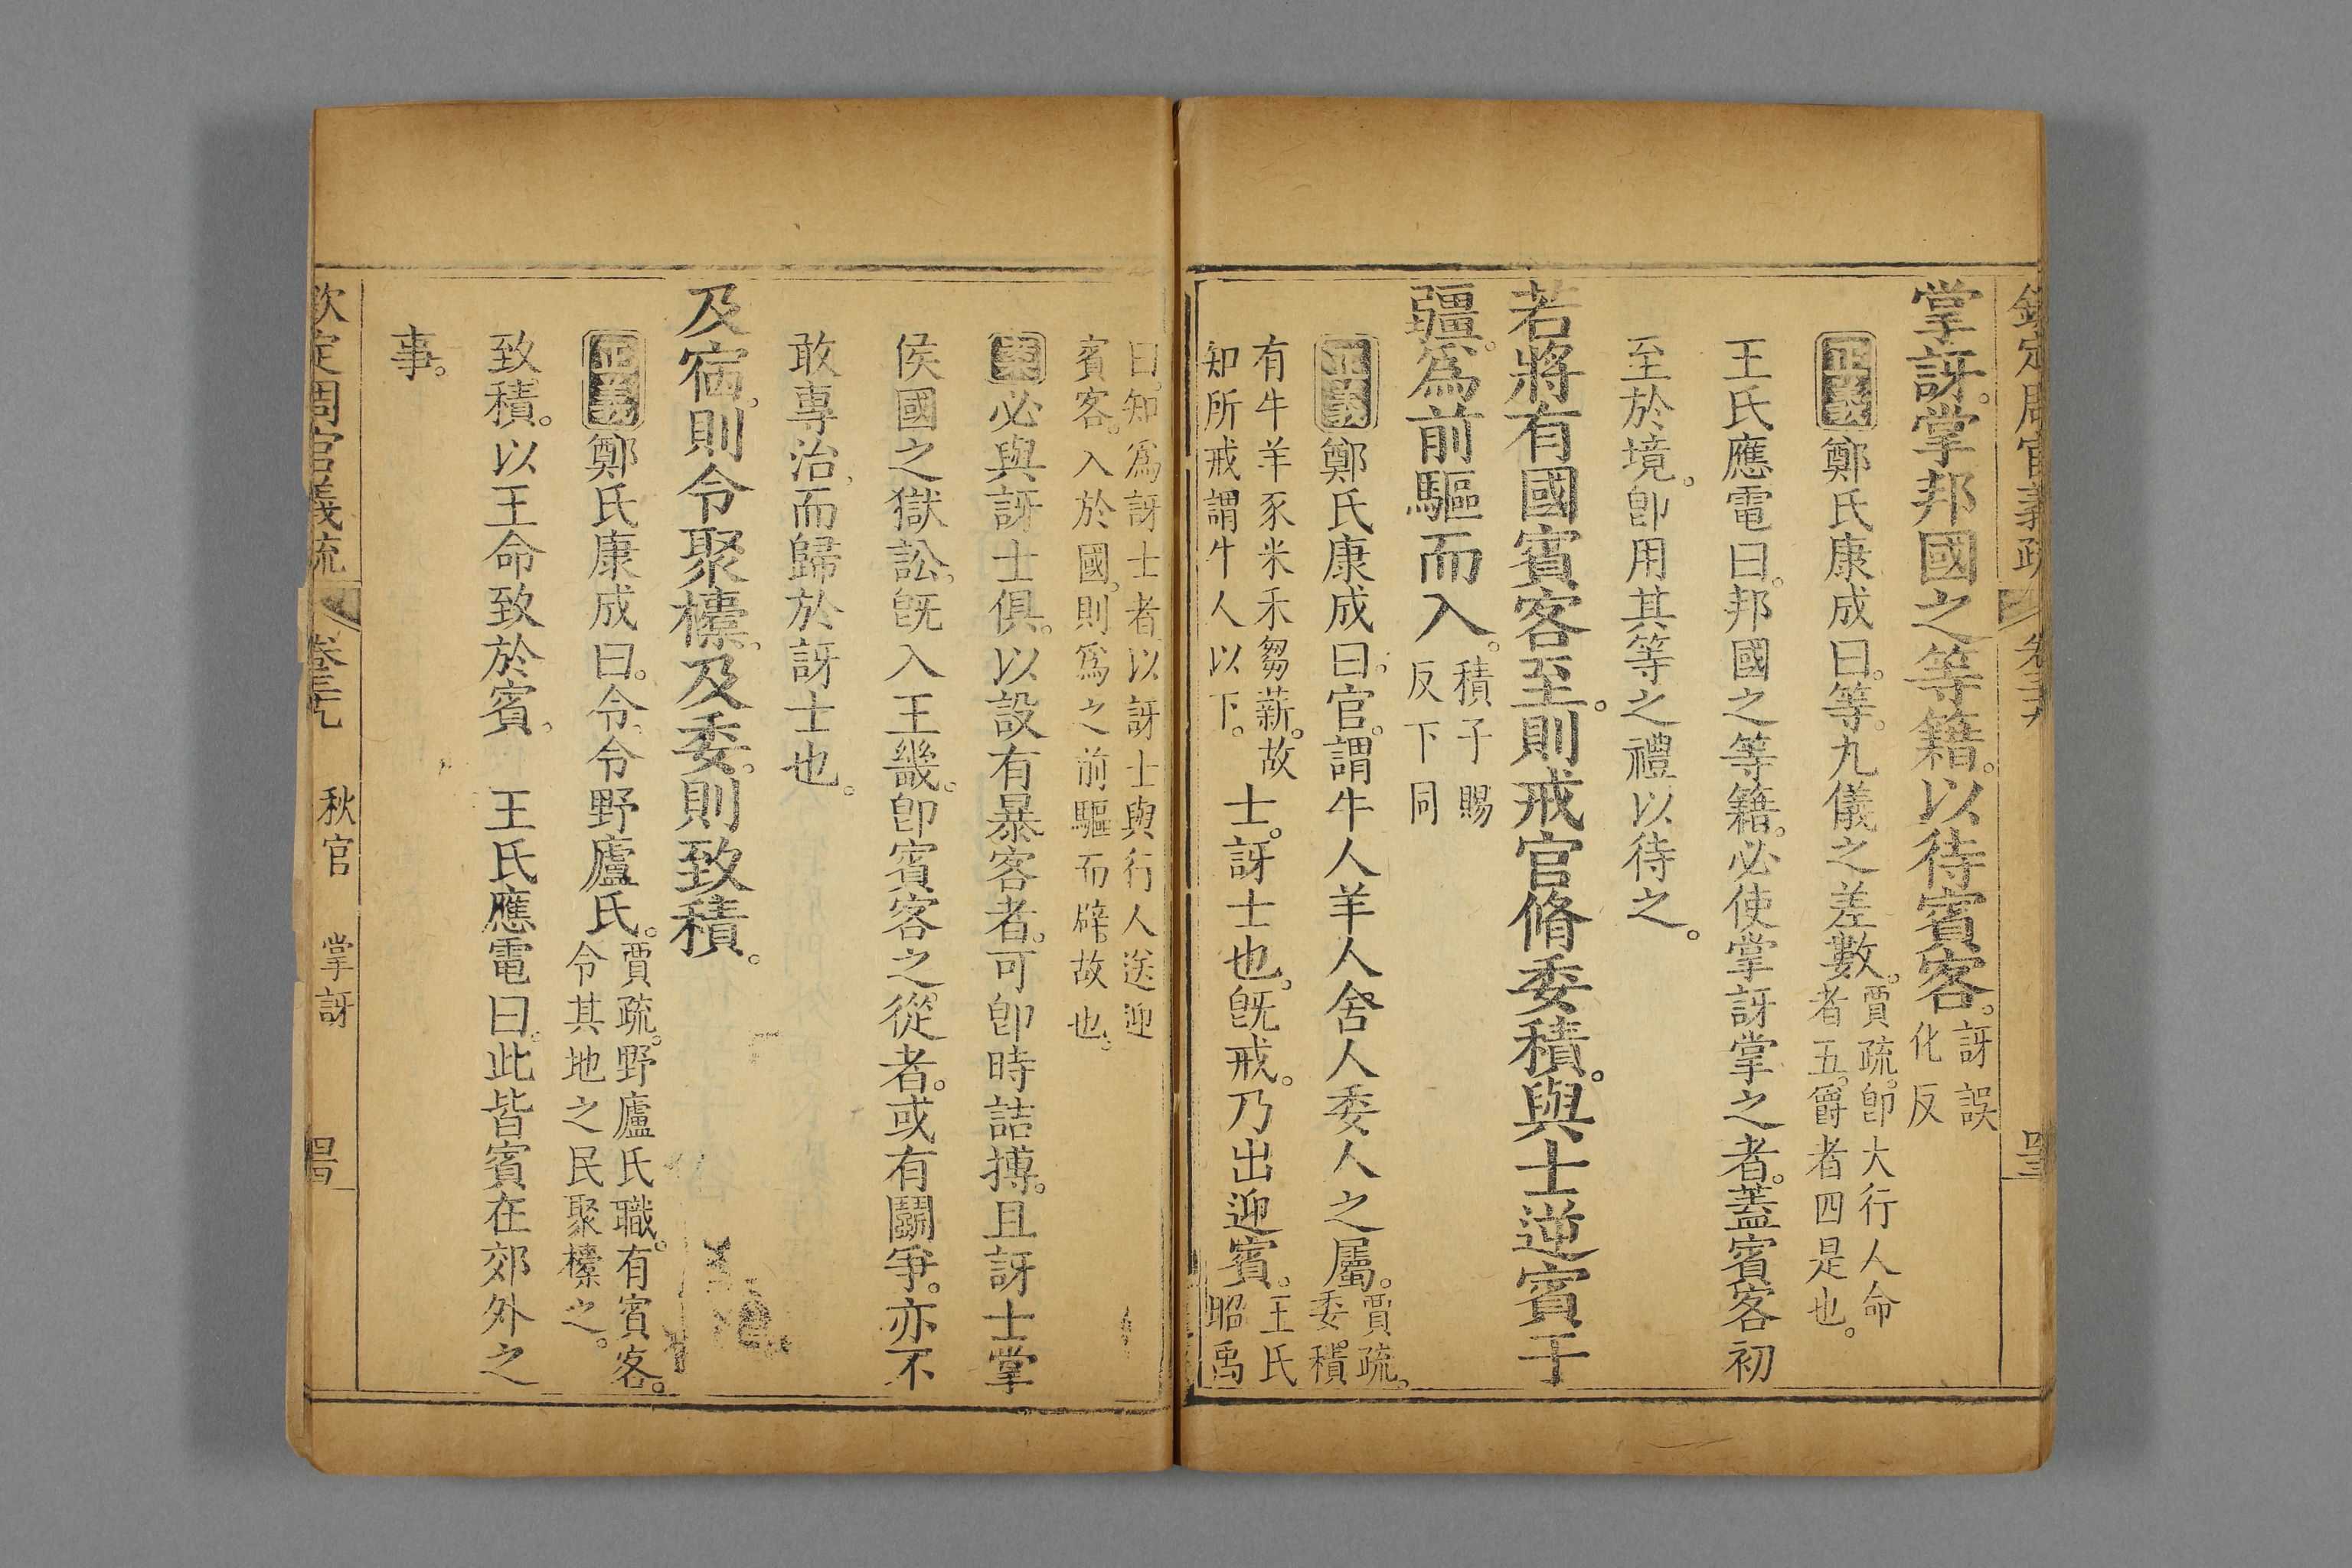 欽定周官義疏 卷三十九
掌訝。掌邦國之等籍。以待賓客。訝誤
化反
正義鄭氏康成曰。等。九儀之差數。賈疏。卽大行人命
者五。爵者四是也。
王氏應電曰。邦國之等籍。必使掌訝掌之者。蓋賓客初
至於境。卽用其等之禮以待之。
若將有國賓客至。則戒官脩委積。與士逆賓于
疆。爲前驅而入。積子賜
反下同
正義鄭氏康成曰。官。謂牛人羊人舍人委人之屬。賈疏。
委積
有牛羊豕米禾芻薪。故
知所戒謂牛人以下。士。訝士也。旣戒。乃出迎賓。王氏
昭禹
曰。知爲訝士者。以訝士與行人送迎
賓客。入於國。則爲之前驅而辟。故也。
案必與訝士俱。以設有暴客者。可卽時詰搏。且訝士掌
侯國之獄訟。旣入王畿。卽賓客之從者。或有鬬爭。亦不
敢專治。而歸於訝士也。
及宿。則令聚櫜。及委。則致積。
正義鄭氏康成曰。令。令野廬氏。賈疏。野廬氏職。有賓客。
令其地之民聚櫜之。
致積。以王命致於賓。 王氏應電曰。此皆賓在郊外之
事。
欽定周官義疏 卷三十九 秋官 掌訝